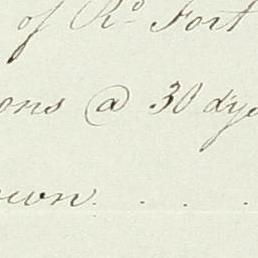 of Ro. Fort
ons @ 30 dys
own . . .